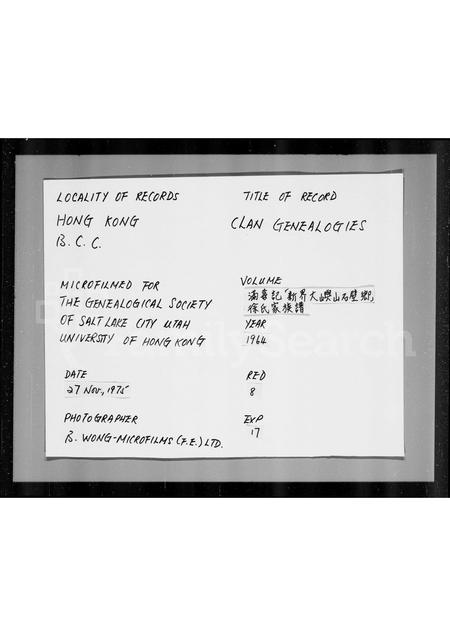 LOCALITY OF RECORDS
HONG KONG
B. C. C.
TITLE OF RECORD
CLAN GENEALOGIES
MICROFILMED FOR
THE GENEALOGICAL SOCIETY
OF SALT LAKE CITY UTAH
UNIVERSTY OF HONG KONG
VOLUME
滿喜記「新界大嶼山石壁鄉」
徐氏家族譜
YEAR
1964
DATE
27 Nov, 1975
RED
8
PHOTOGRAPHER
B. WONG-MICROFILMS (F.E.) LTD.
EXP
17
FamilySearch